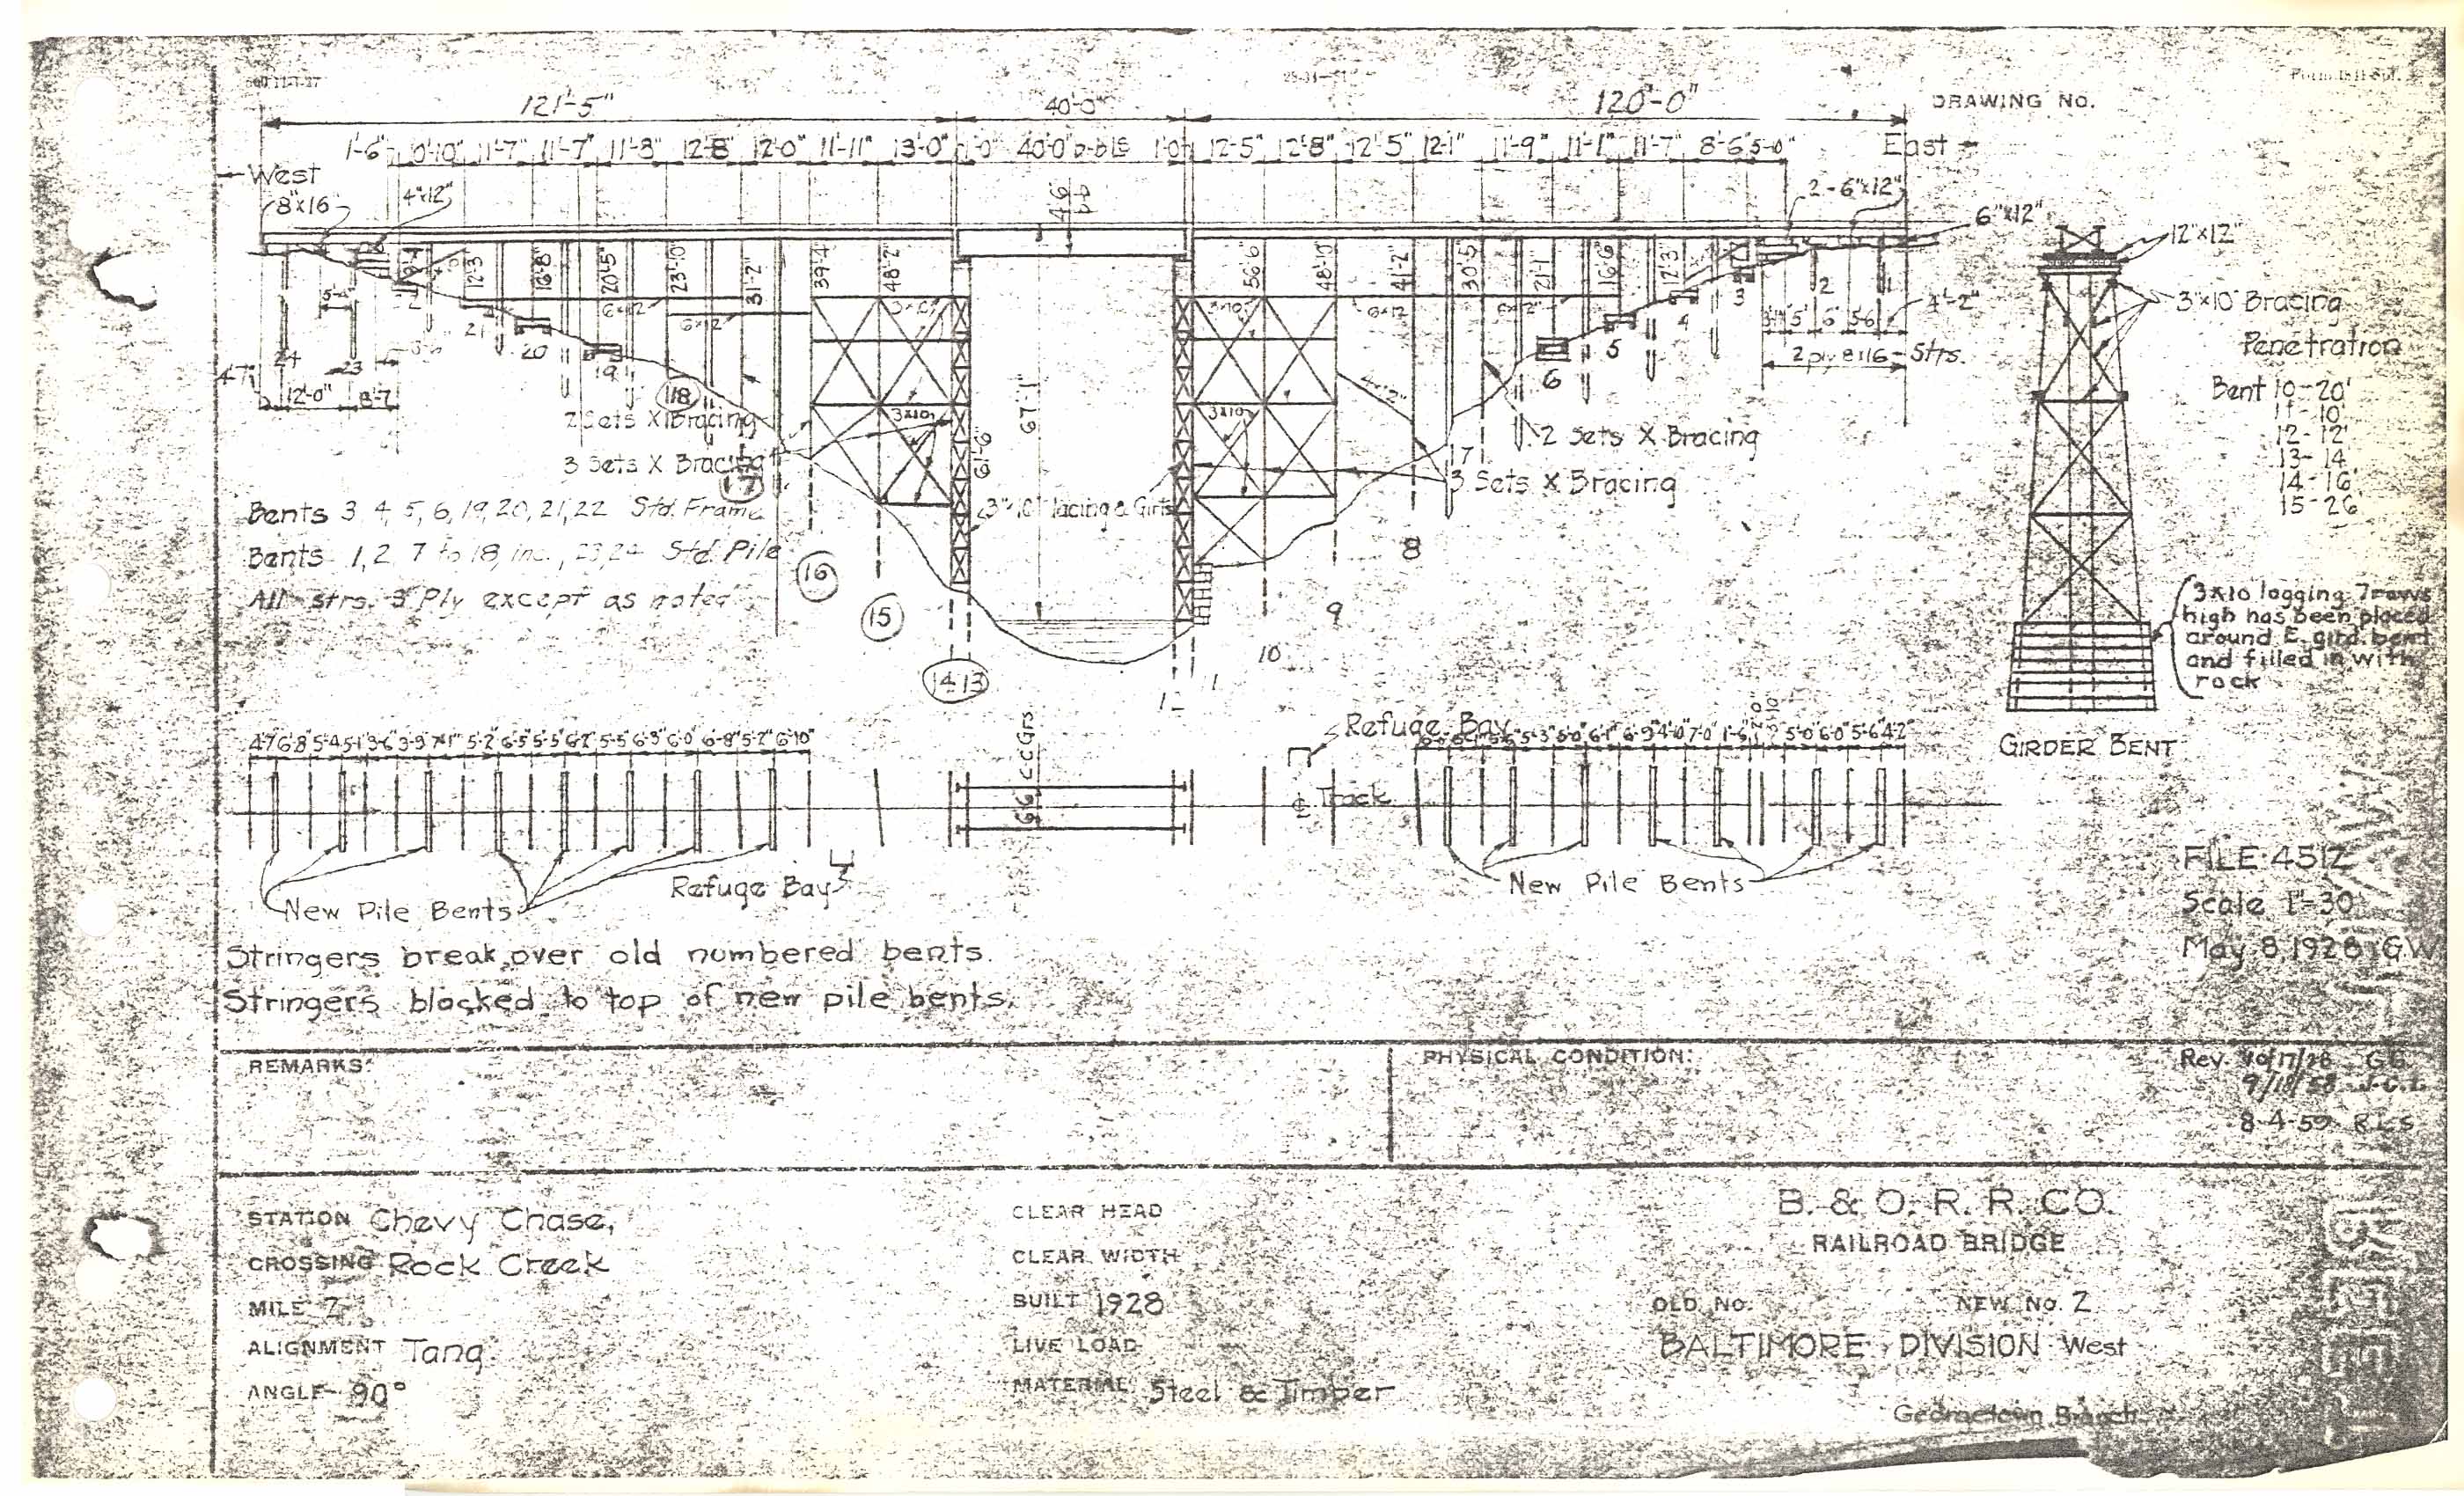 DRAWING NO.
121'-5" 40'-0" 120'-0"
1'-6" 10'-10" 11'-7" 11'-7" 11'-8" 12'-8" 12'-0" 11'-11" 13'-0" 1'-0" 40'-0" 1'-0" 12'-5" 12'-8" 12'-5" 12'-1" 11'-9" 11'-1" 11'-7" 8'-6" 5'-0"
West
East
8"x16"
4"x12"
2-6"x12"
6"x12"
12"x12"
12'-3" 16'-8" 20'-5" 23'-10" 31'-2" 39'-4" 48'-2" 56'-6" 48'-10" 41'-2" 30'-5" 21'-1" 16'-6" 12'-3"
3"x10" Bracing
4'-2"
2 ply 8x16 Strs.
24 23 21 20 19 18
12'-0" 8'-7"
67'-1"
61'-6"
6 5 4 3 2 1
Penetration
Bent 10-20'
11-10'
12-12'
13-14
14-16'
15-26'
2 Sets X Bracing
3 Sets X Bracing
17
2 Sets X Bracing
3 Sets X Bracing
3"x10" lacing & Girts
Bents 3, 4, 5, 6, 19, 20, 21, 22 Std. Frame
Bents 1, 2, 7 to 18, inc., 23, 24 Std. Pile
All strs. 3 Ply except as noted
16
15
14 13
10
9
8
7
3x10 logging 7 rows
high has been placed
around E. gird. bent
and filled in with
rock
GIRDER BENT
Refuge Bay
4'-7" 6'-8" 5'-4" 5'-1" 3'-6" 3'-9" 7'-1" 5'-2" 6'-5" 5'-5" 6'-2" 5'-5" 6'-3" 6'-0" 6'-8" 5'-2" 6'-10"
5'-3" 6'-0" 6'-1" 6'-9" 4'-0" 7'-0" 1'-6" 5'-0" 6'-0" 5'-6" 4'-2"
6'-6" C-C Grs
Track
New Pile Bents
Refuge Bay
New Pile Bents
Stringers break over old numbered bents.
Stringers blocked to top of new pile bents.
FILE 4512
Scale 1"-30'
May 8, 1928 GW
REMARKS:
PHYSICAL CONDITION:
Rev. 10/17/28 G.G.
9/18/58
8-4-59 R.L.S
STATION Chevy Chase,
CROSSING Rock Creek
MILE 7
ALIGNMENT Tang.
ANGLE 90°
CLEAR HEAD
CLEAR WIDTH
BUILT 1928
LIVE LOAD
MATERIAL Steel & Timber
B. & O. R. R. CO.
RAILROAD BRIDGE
OLD NO. NEW NO. 2
BALTIMORE DIVISION West
Georgetown Branch